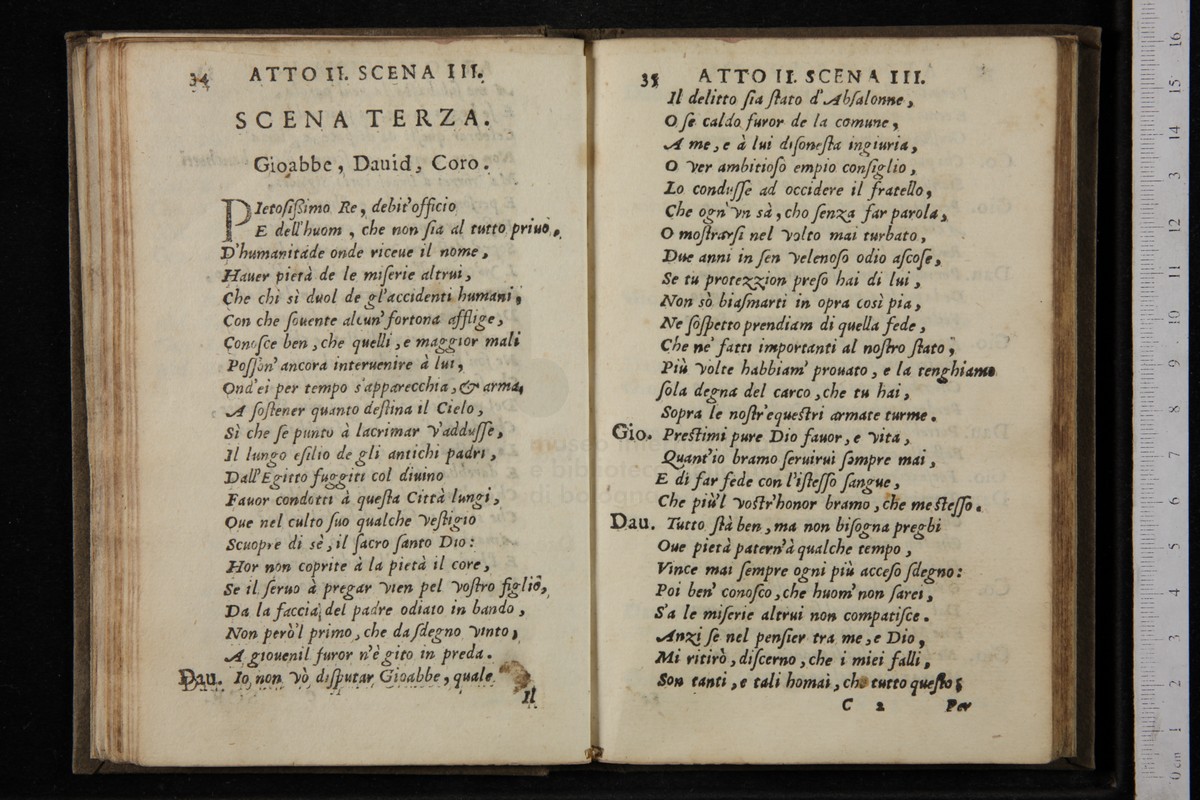 34 ATTO II. SCENA III.
SCENA TERZA.
Gioabbe, Dauid, Coro.
PIetosißimo Re, debit'officio
E dell'huom, che non sia al tutto priuo,
D'humanitade onde riceue il nome,
Hauer pietà de le miserie altrui,
Che chi sì duol de gl'accidenti humani,
Con che souente alcun'fortona afflige,
Conosce ben, che quelli, e maggior mali
Posson'ancora interuenire à lui,
Ond'ei per tempo s'apparecchia, & arma,
A sostener quanto destina il Cielo,
Sì che se punto à lacrimar v'addusse,
Il lungo esilio de gli antichi padri,
Dall'Egitto fuggiti col diuino
Fauor condotti à questa Città lungi,
Oue nel culto suo qualche vestigio
Scuopre di sè, il sacro santo Dio:
Hor non coprite à la pietà il core,
Se il seruo à pregar vien pel vostro figlio,
Da la faccia del padre odiato in bando,
Non però'l primo, che da sdegno vinto,
A giouenil furor n'è gito in preda.
Dau. Io non vò disputar Gioabbe, quale
Il
35 ATTO II. SCENA III.
Il delitto sia stato d'Absalonne,
O se caldo furor de la comune,
A me, e à lui disonesta ingiuria,
O ver ambitioso empio consiglio,
Lo condusse ad occidere il fratello,
Che ogn'vn sà, cho senza far parola,
O mostrarsi nel volto mai turbato,
Due anni in sen velenoso odio ascose,
Se tu protezzion preso hai di lui,
Non sò biasmarti in opra così pia,
Ne sospetto prendiam di quella fede,
Che ne' fatti importanti al nostro stato,
Più volte habbiam' prouato, e la tenghiamo
sola degna del carco, che tu hai,
Sopra le nostr'equestri armate turme.
Gio. Prestimi pure Dio fauor, e vita,
Quant'io bramo seruirui sempre mai,
E di far fede con l'istesso sangue,
Che più'l vostr'honor bramo, che me stesso.
Dau. Tutto stà ben, ma non bisogna preghi
Oue pietà patern'à qualche tempo,
Vince mai sempre ogni più acceso sdegno:
Poi ben' conosco, che huom' non sarei,
S'a le miserie altrui non compatisce.
Anzi se nel pensier tra me, e Dio,
Mi ritirò, discerno, che i miei falli,
Son tanti, e tali homai, che tutto questo;
C 2 Per